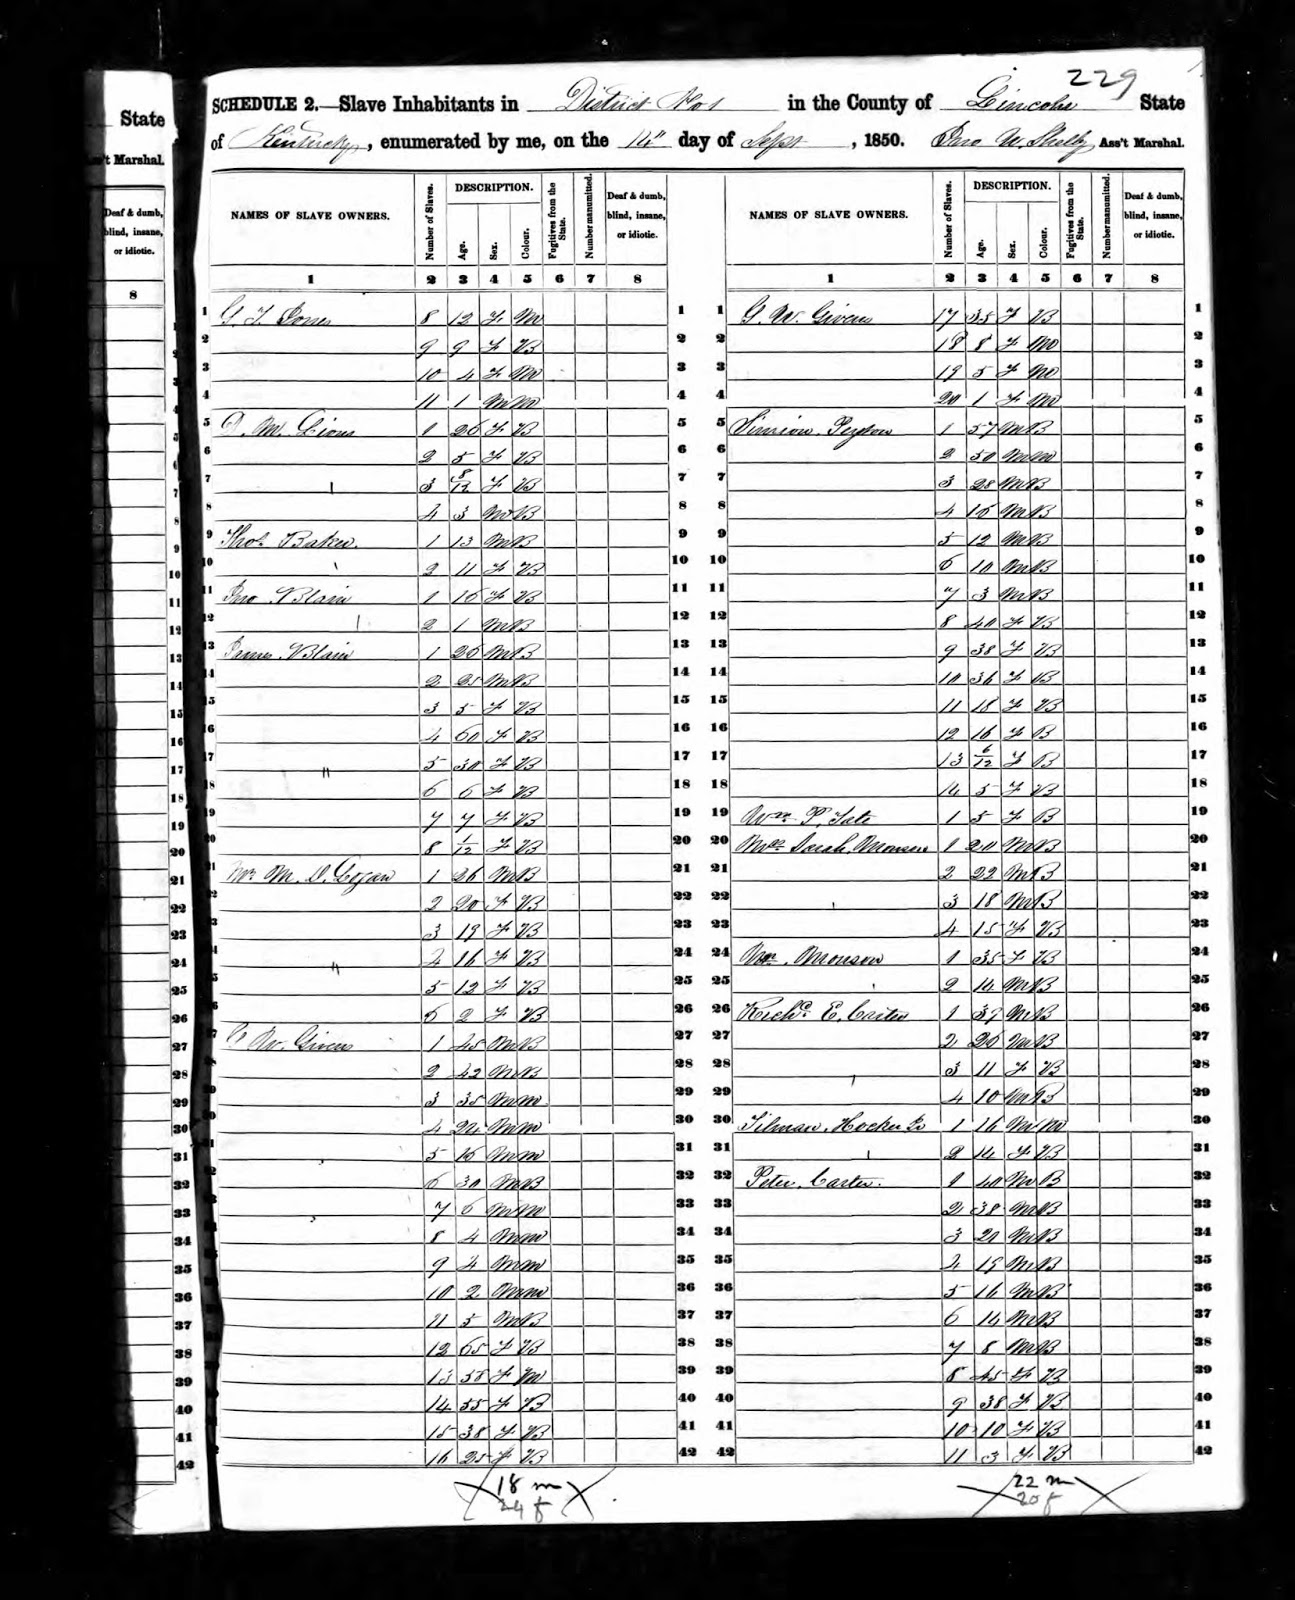 229
SCHEDULE 2.—Slave Inhabitants in District No 1 in the County of Lincoln State
of Kentucky, enumerated by me, on the 14" day of Sept, 1850. Jno W. Shelby Ass't Marshal.
State
't Marshal.
Deaf & dumb, blind, insane, or idiotic.
8
NAMES OF SLAVE OWNERS. Number of Slaves. DESCRIPTION. Age. Sex. Colour. Fugitives from the State. Number manumitted. Deaf & dumb, blind, insane, or idiotic.
1 2 3 4 5 6 7 8
1 G. T. Jones 8 12 F M 1
2 9 9 F B 2
3 10 4 F M 3
4 11 1 M M 4
5 D. M. 1 26 F B 5
6 2 5 F B 6
7 3 8/12 F B 7
8 4 3 M B 8
9 Thos. Baker. 1 13 M B 9
10 2 11 F B 10
11 Jno Blain 1 16 F B 11
12 2 1 M B 12
13 James Blain 1 26 M B 13
14 2 25 M B 14
15 3 5 F B 15
16 4 60 F B 16
17 " 5 30 F B 17
18 6 6 F B 18
19 7 7 F B 19
20 8 1/12 F B 20
21 M. D. Logan 1 26 M B 21
22 2 20 F B 22
23 3 19 F B 23
24 " 4 16 F B 24
25 5 12 F B 25
26 6 2 F B 26
27 W. Givens 1 45 M B 27
28 2 42 M B 28
29 3 35 M M 29
30 4 24 M M 30
31 5 16 M M 31
32 6 30 M B 32
33 7 6 M M 33
34 8 4 M M 34
35 9 4 M M 35
36 10 2 M M 36
37 11 5 M B 37
38 12 65 F B 38
39 13 58 F M 39
40 14 55 F B 40
41 15 38 F B 41
42 16 25 F B 42
18 m
24 f
NAMES OF SLAVE OWNERS. Number of Slaves. DESCRIPTION. Age. Sex. Colour. Fugitives from the State. Number manumitted. Deaf & dumb, blind, insane, or idiotic.
1 2 3 4 5 6 7 8
1 G. W. Givens 17 35 F B 1
2 18 8 F M 2
3 19 5 F M 3
4 20 1 F M 4
5 Simion Peyton 1 57 M B 5
6 2 50 M M 6
7 3 28 M B 7
8 4 16 M B 8
9 5 12 M B 9
10 6 10 M B 10
11 7 3 M B 11
12 8 40 F B 12
13 9 38 F B 13
14 10 36 F B 14
15 11 18 F B 15
16 12 16 F B 16
17 13 6/12 F B 17
18 14 5 F B 18
19 Wm P. Tate 1 5 F B 19
20 Mrs Sarah Monson 1 20 M B 20
21 2 22 M B 21
22 3 18 M B 22
23 4 15 F B 23
24 Wm. Monson 1 35 F B 24
25 2 14 M B 25
26 Richd E. Carter 1 39 M B 26
27 2 26 M B 27
28 3 11 F B 28
29 4 10 M B 29
30 Tilman Hocker Sr 1 16 M M 30
31 2 14 F B 31
32 Peter Carter. 1 40 M B 32
33 2 38 M B 33
34 3 20 M B 34
35 4 19 M B 35
36 5 16 M B 36
37 6 14 M B 37
38 7 8 M B 38
39 8 45 F B 39
40 9 38 F B 40
41 10 10 F B 41
42 11 3 F B 42
22 m
20 f